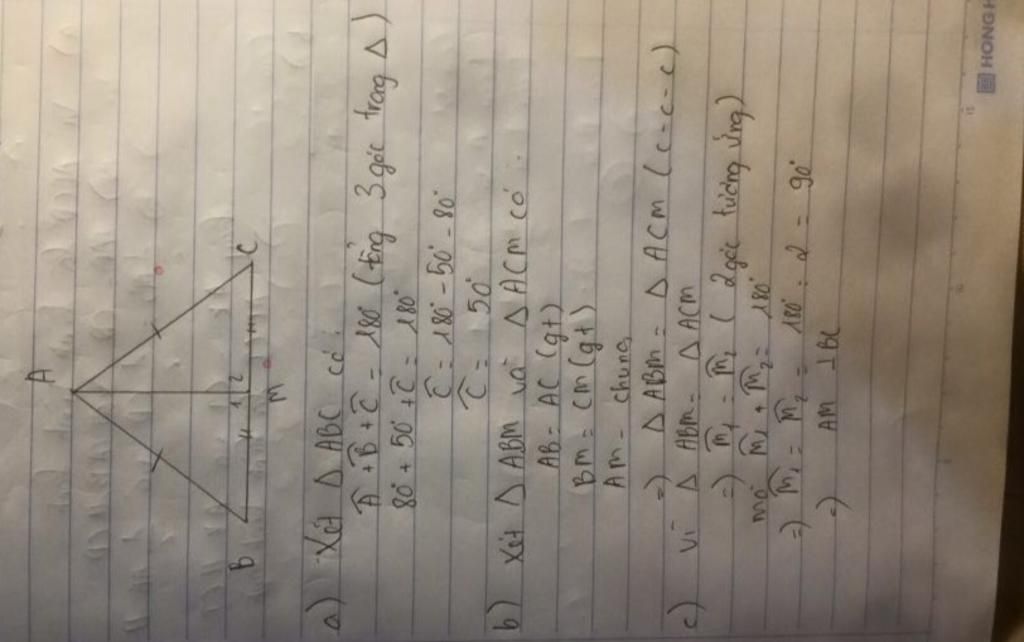 A
B
C
M
1
2
a) Xét Δ ABC có:
Â + B̂ + Ĉ = 180° (tổng 3 góc trong Δ)
80° + 50° + Ĉ = 180°
Ĉ = 180° - 50° - 80°
Ĉ = 50°
b) Xét Δ ABM và Δ ACM có:
AB = AC (gt)
BM = CM (gt)
AM - chung
=) Δ ABM = Δ ACM (c-c-c)
c) Vì Δ ABM = Δ ACM
=) M̂₁ = M̂₂ (2 góc tương ứng)
mà M̂₁ + M̂₂ = 180°
=) M̂₁ = M̂₂ = 180° : 2 = 90°
=) AM ⊥ BC
HONG H